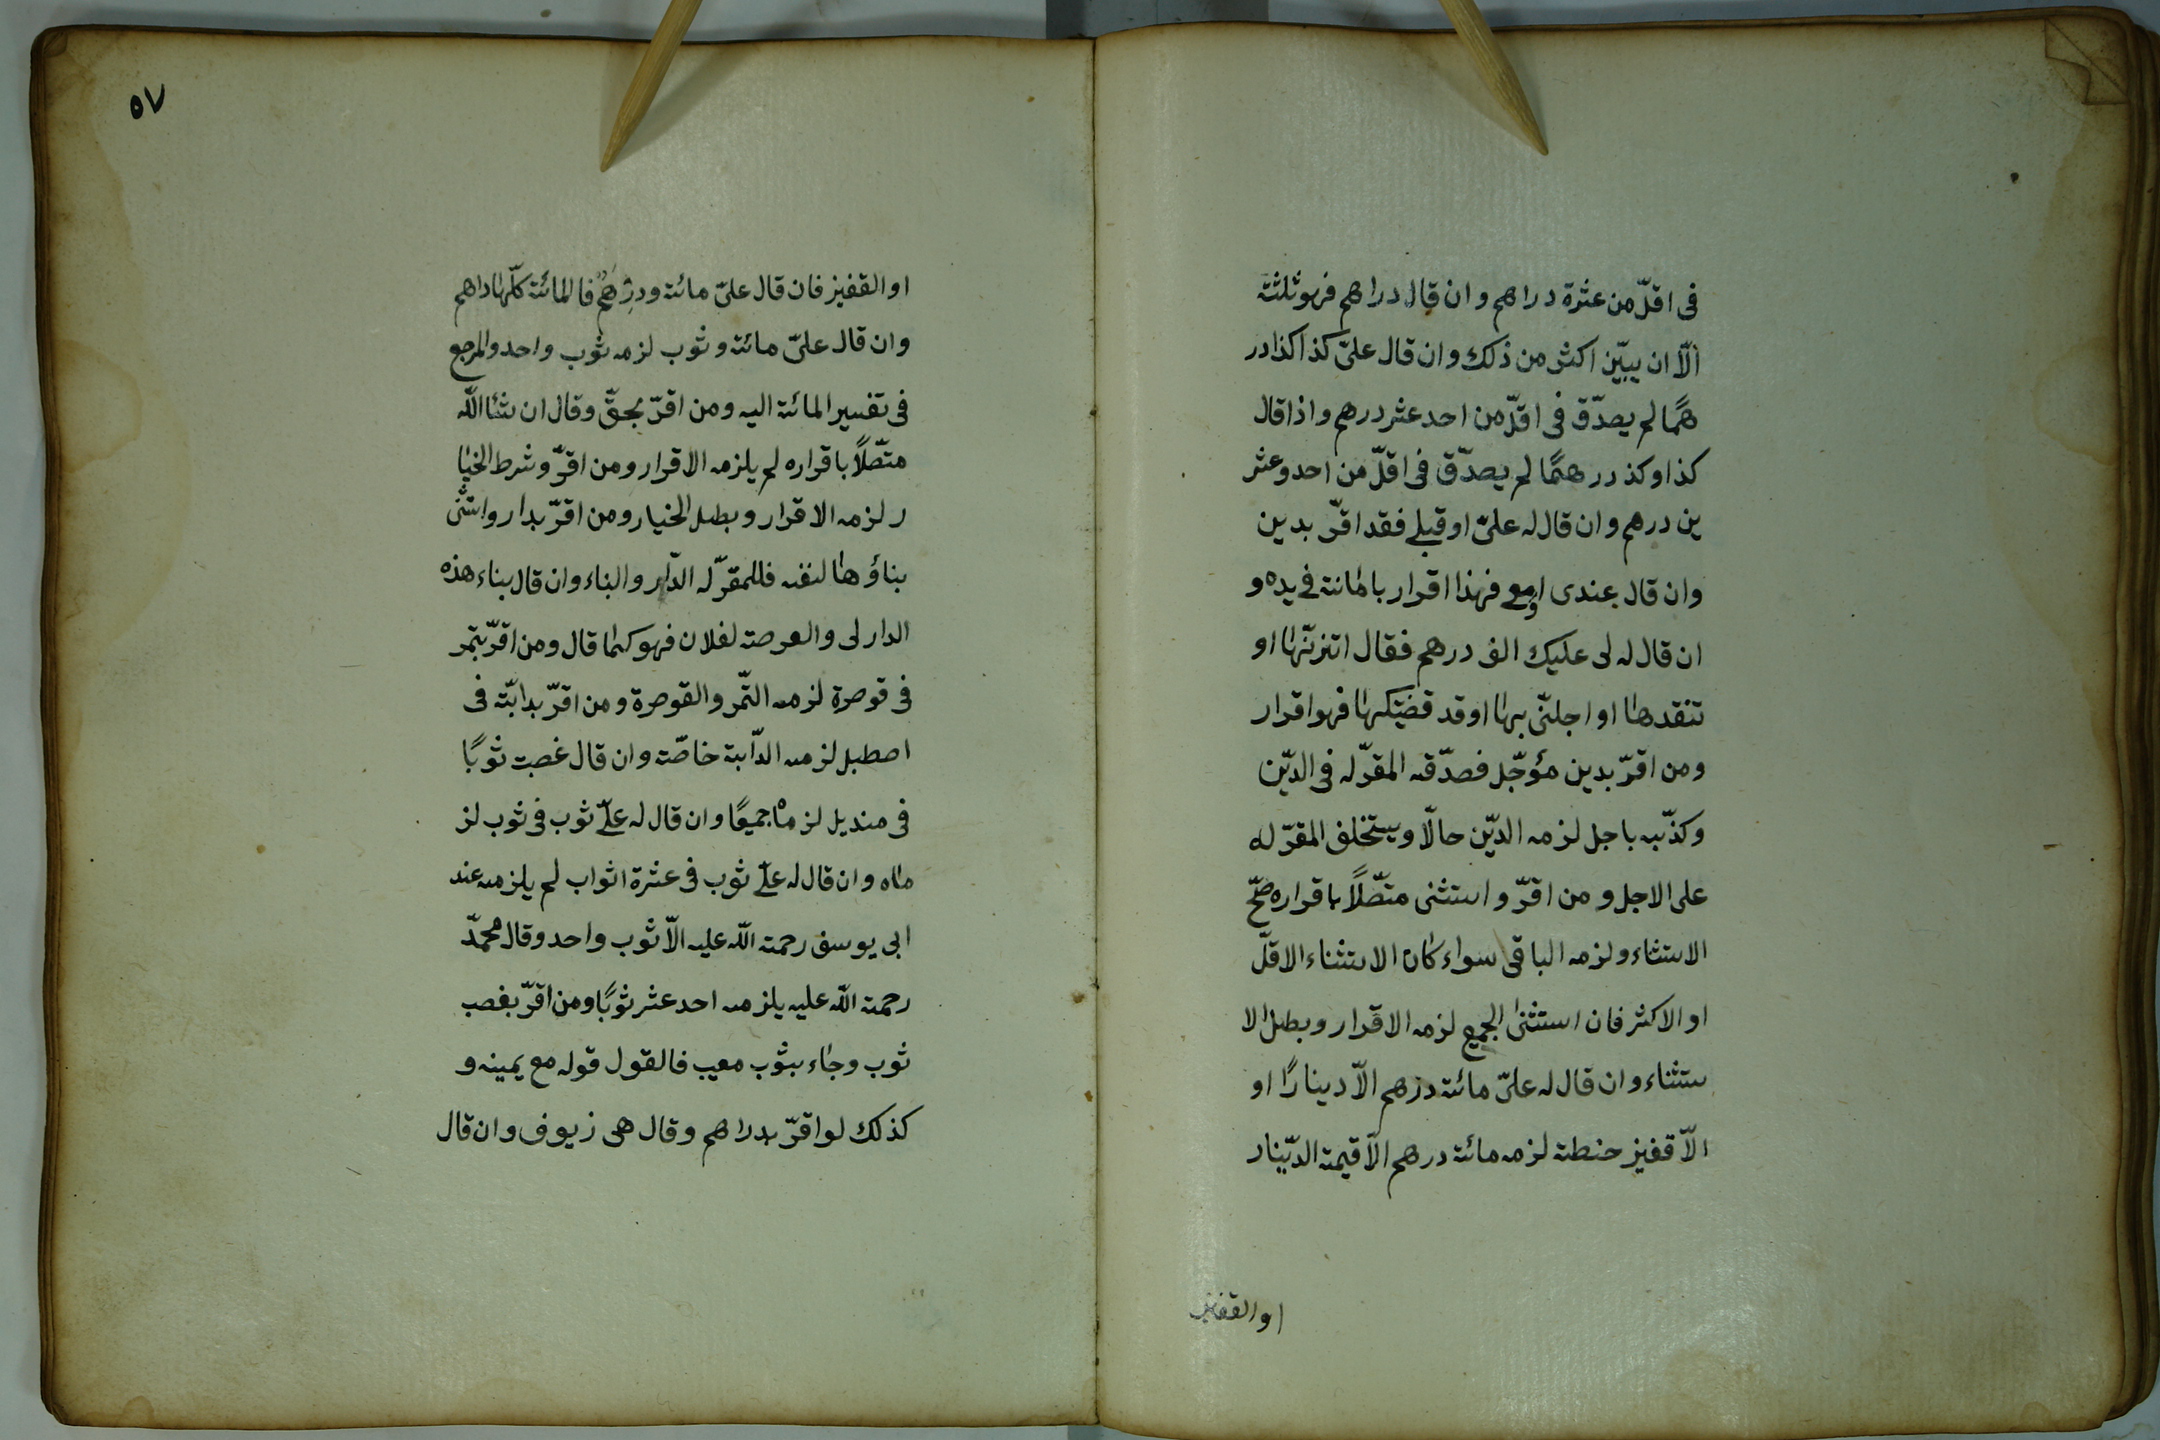 فى اقلّ من عشرة دراهم وان قال دراهم فهو ثلثة
الّا ان يبيّن اكثر من ذلك وان قال علىّ كذا كذا در
همًا لم يصدّق فى اقلّ من احد عشر درهم واذا قال
كذا وكذ درهمًا لم يصدّق فى اقلّ من احد وعشر
ين درهم وان قال له علىّ او قبلى فقد اقرّ بدين
وان قال عندى او معى فهذا اقرار بامانة فى يده و
ان قال له لى عليك الف درهم فقال اتزنّها او
تنقدها او اجلنّى بها او قد قضيّتكها فهو اقرار
ومن اقرّ بدين مؤجّل فصدّقه المقرّ له فى الديّن
وكذّبه باجل لزمه الديّن حالّا ويستخلف المقرّ له
على الاجل ومن اقرّ واستثنى متّصلًا باقراره صّح
الاستثاء ولزمه الباقى سواء كان الاستثناء الاقلّ
او الاكثر فان استثنى الجميع لزمه الاقرار وبطل الا
ستثناء وان قال له علىّ مائة درهم الّا دينارًا او
الّا قفيز حنطة لزمه مائة درهم الّا قيمة الديّنار
او القفيز
٥٧
او القفيز فان قال علىّ مائة ودرهم فالمائة كلّها داهم
وان قال علىّ مائة وثوب لزمه ثوب واحد والمرجع
فى تفسير المائة اليه ومن اقرّ بحقّ وقال ان شاالله
متّصلًا باقراره لم يلزمه الاقرار ومن اقرّ وشرط الخيا
ر لزمه الاقرار وبطل الخيار ومن اقرّ بدار واستثنى
بناؤها لنفسه فللمقرّ له الدّار والبناء وان قال بناء هذه
الدار لى والعرصة لفلان فهو كما قال ومن اقرّ بتمر
فى قوصرة لزمه التّمر والقوصرة ومن اقرّ بدابّة فى
اصطبل لزمه الدّابة خاصّة وان قال غصبت ثوبًا
فى منديل لزماه جميعًا وان قال له علىّ ثوب فى ثوب لز
ماه وان قال له علىّ ثوب فى عشرة اثواب لم يلزمه عند
ابى يوسف رحمة الله عليه الّا ثوب واحد وقال محمدّ
رحمة الله عليه يلزمه احد عشر ثوبًا ومن اقرّ بغصب
ثوب وجاء بثوب معيب فالقول قوله مع يمينه و
كذلك لو اقرّ بدراهم وقال هى زيوف وان قال